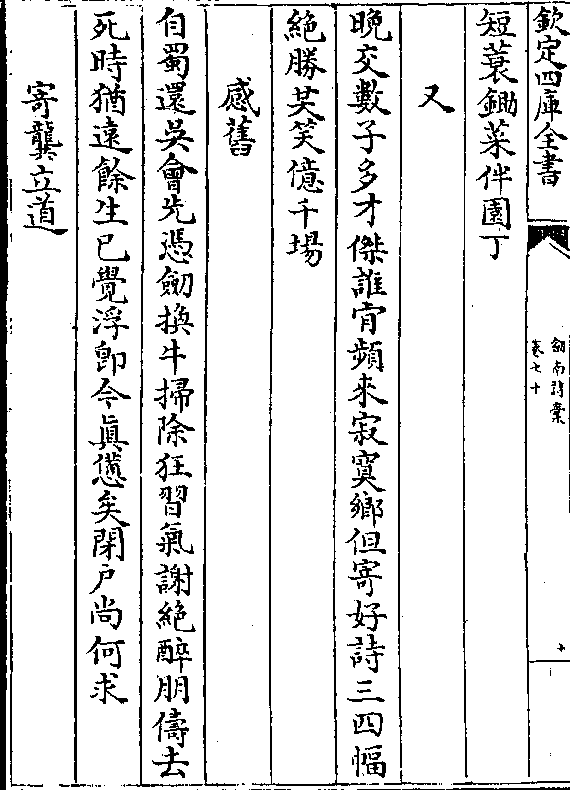 欽定四庫全書
劒南詩稾
卷七十
短蓑鋤菜伴園丁
又
晩交數子多才傑誰肯頻來寂寞鄉但寄好詩三四幅
絶勝共笑億千場
感舊
自蜀還吳會先憑劒換牛掃除狂習氣謝絶醉朋儔去
死時猶遠餘生已覺浮即今眞憊矣閉户尚何求
寄龔立道